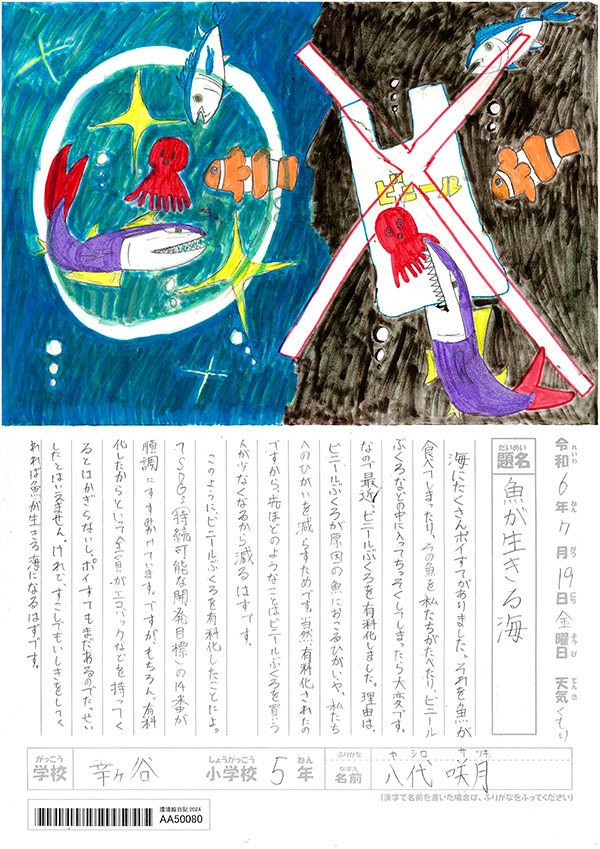 ビニール
令和6年7月19日金曜日 天気くもり
れいわ ねん がつ にち ようび てんき
だいめい
題名 魚が生きる海
海にたくさんポイすてがありました。それを魚が
食べてしまったり、その魚を私たちがたべたり、ビニール
ぶくろなどの中に入ってちっそくしてしまったら大変です。
なので最近、ビニールぶくろを有料化しました。理由は、
ビニールぶくろが原因の魚におこるひがいや、私たち
へのひがいを減らすためです。当然、有料化されたの
ですから、先ほどのようなことはビニールぶくろを買う
人が少なくなるから減るはずです。
このように、ビニールぶくろを有料化したことによっ
てSDGs(持続可能な開発目標)の14番が
順調にすすみかけています。ですが、もちろん、有料
化したからといって全員がエコバックなどを持ってく
るとはかぎらないし、ポイすてもまだあるのでたっせい
したとはいえません。けれど、すこしでもいしきをしてく
れば魚が生きる海になるはずです。
がっこう しょうがっこう ねん
学校 幸ヶ谷 小学校 5年
ふりがな ヤシロ サツキ
なまえ
名前 八代 咲月
(漢字で名前を書いた場合は、ふりがなをふってください)
環境絵日記 2024
AA50080